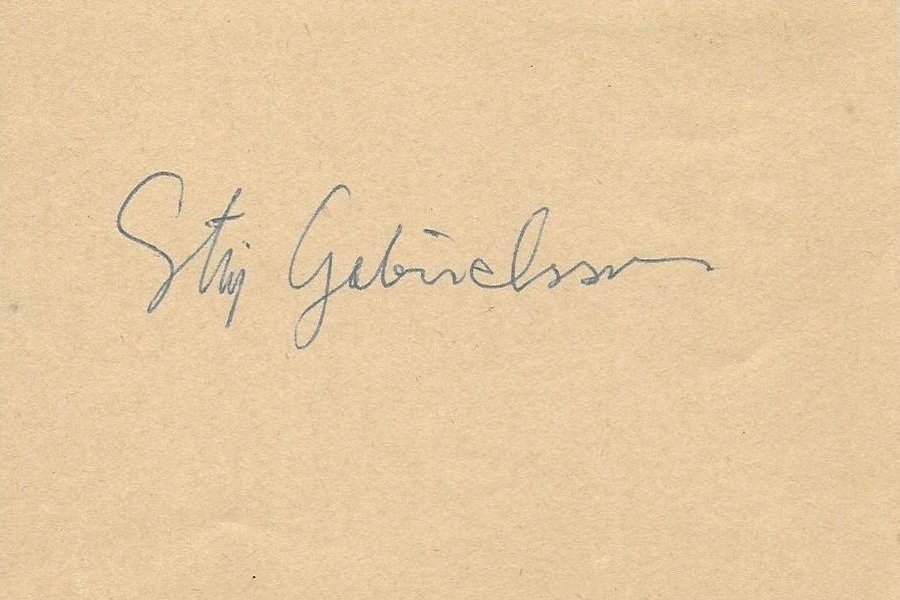 Stig Gabrielsson